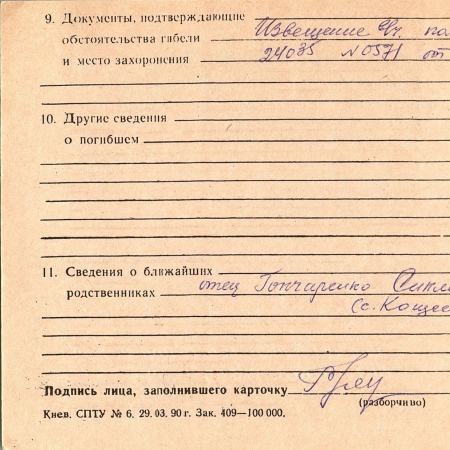 9. Документы, подтверждающие
обстоятельства гибели Извещение в/ч
и место захоронения 24035 №0571 от
10. Другие сведения
о погибшем
11. Сведения о ближайших
родственниках отец Гончаренко
(с.
Подпись лица, заполнившего карточку
(разборчиво)
Киев. СПТУ № 6. 29. 03. 90 г. Зак. 409—100 000.